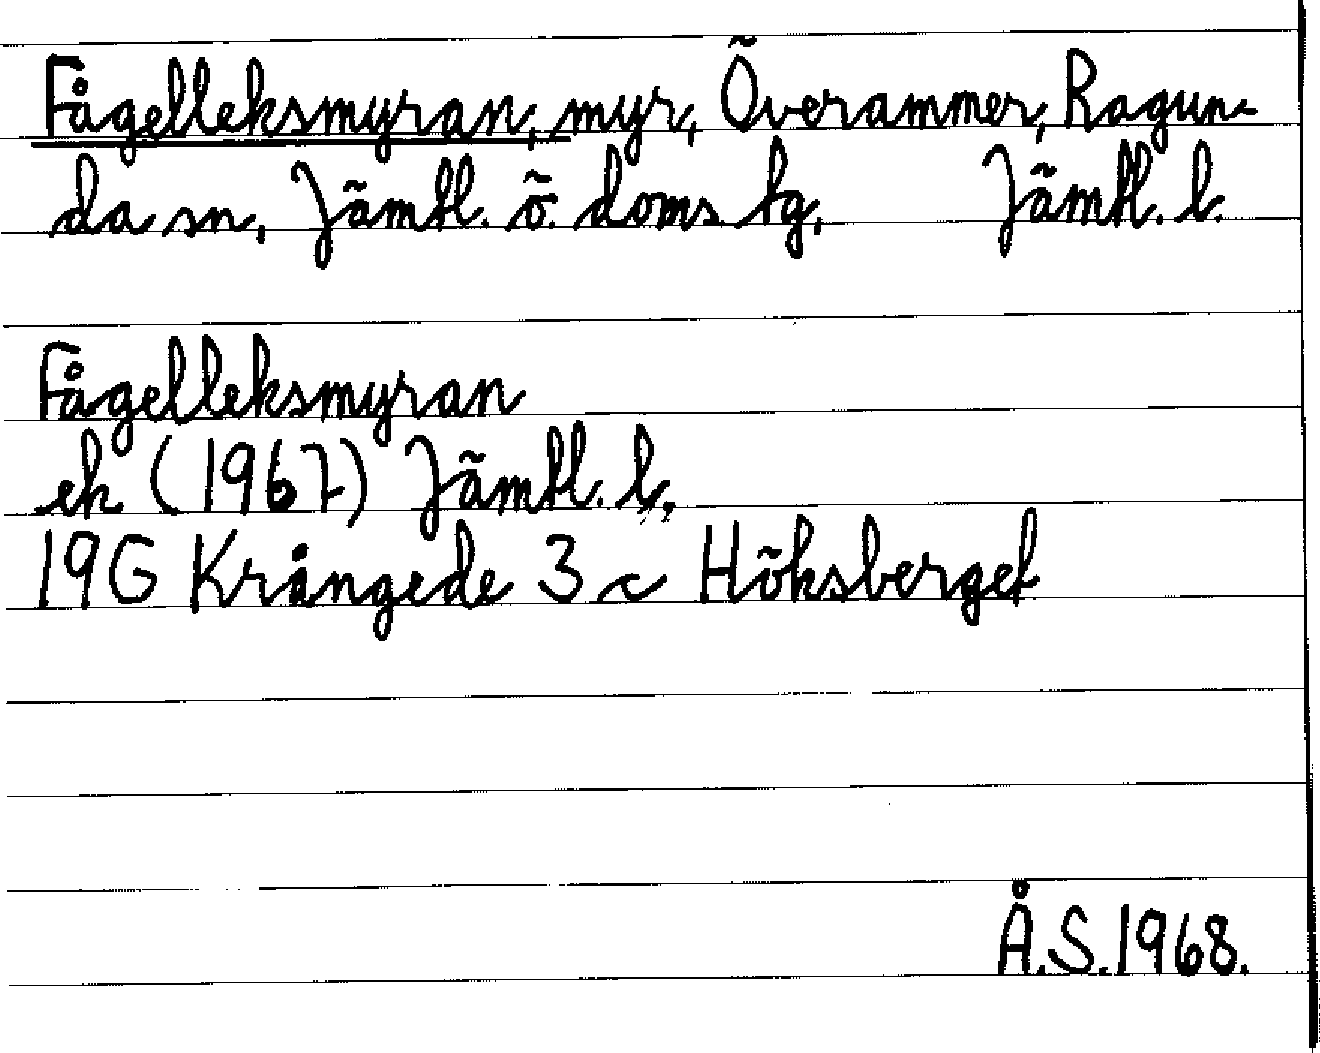 Fågelleksmyran, myr, Överammer, Ragun-
da sn, Jämtl. ö. doms. tg, Jämtl. l.
Fågelleksmyran
ek (1967) Jämtl. l.,
19G Krångede 3 c Höksberget
Å.S.1968.